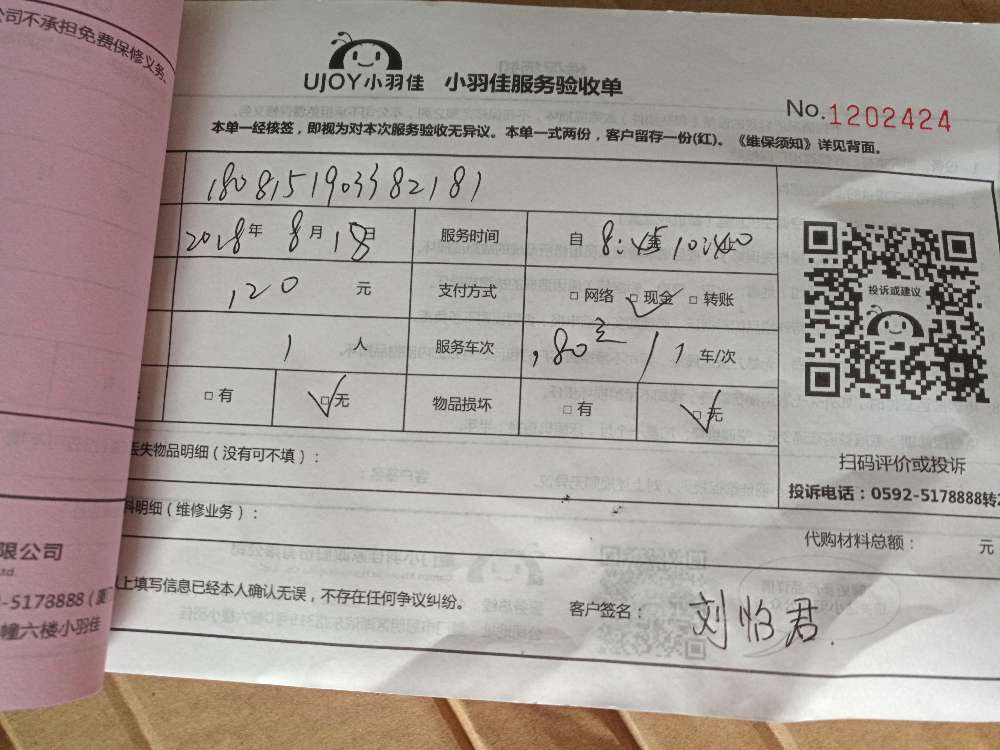 公司不承担免费保修义务。
UJOY小羽佳 小羽佳服务验收单
No.1202424
本单一经核签，即视为对本次服务验收无异议。本单一式两份，客户留存一份(红)。《维保须知》详见背面。
1808151903382181
2018年 8月18日 服务时间 自 8:45 10:40
120 元 支付方式 □网络 ☑现金 □转账
投诉或建议
1 人 服务车次 180 1 车/次
□有 ☑无 物品损坏 □有 ☑无
扫码评价或投诉
丢失物品明细（没有可不填）：
投诉电话：0592-5178888转2
料明细（维修业务）：
代购材料总额： 元
限公司
Ltd.
以上填写信息已经本人确认无误，不存在任何争议纠纷。
客户签名： 刘怡君
-5178888（厦
幢六楼小羽佳